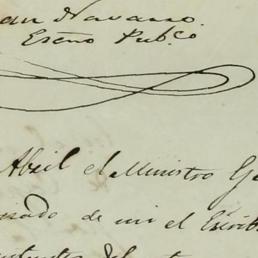 an Navarro.
Escno Pubco
Abril el Ministro Ge
de mi el Escrib